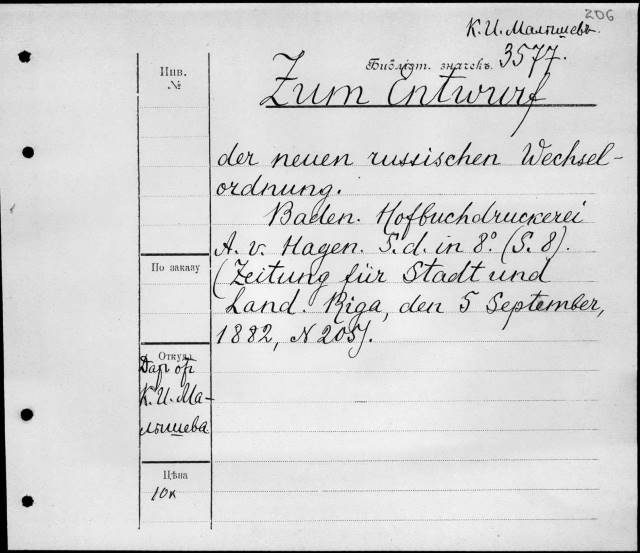 206
К. И. Малышевъ
Библіот. значекъ. 3577.
Инв.
№
Zum Entwurf
der neuen russischen Wechsel-
ordnung.
Baden. Hofbuchdruckerei
A. v. Hagen. S.d. in 8°. (S. 8).
(Zeitung für Stadt und
Land. Riga, den 5 September,
1882, N 205).
По заказу
Откуда
Дар от
К. И. Ма-
лышева
Цѣна
10к